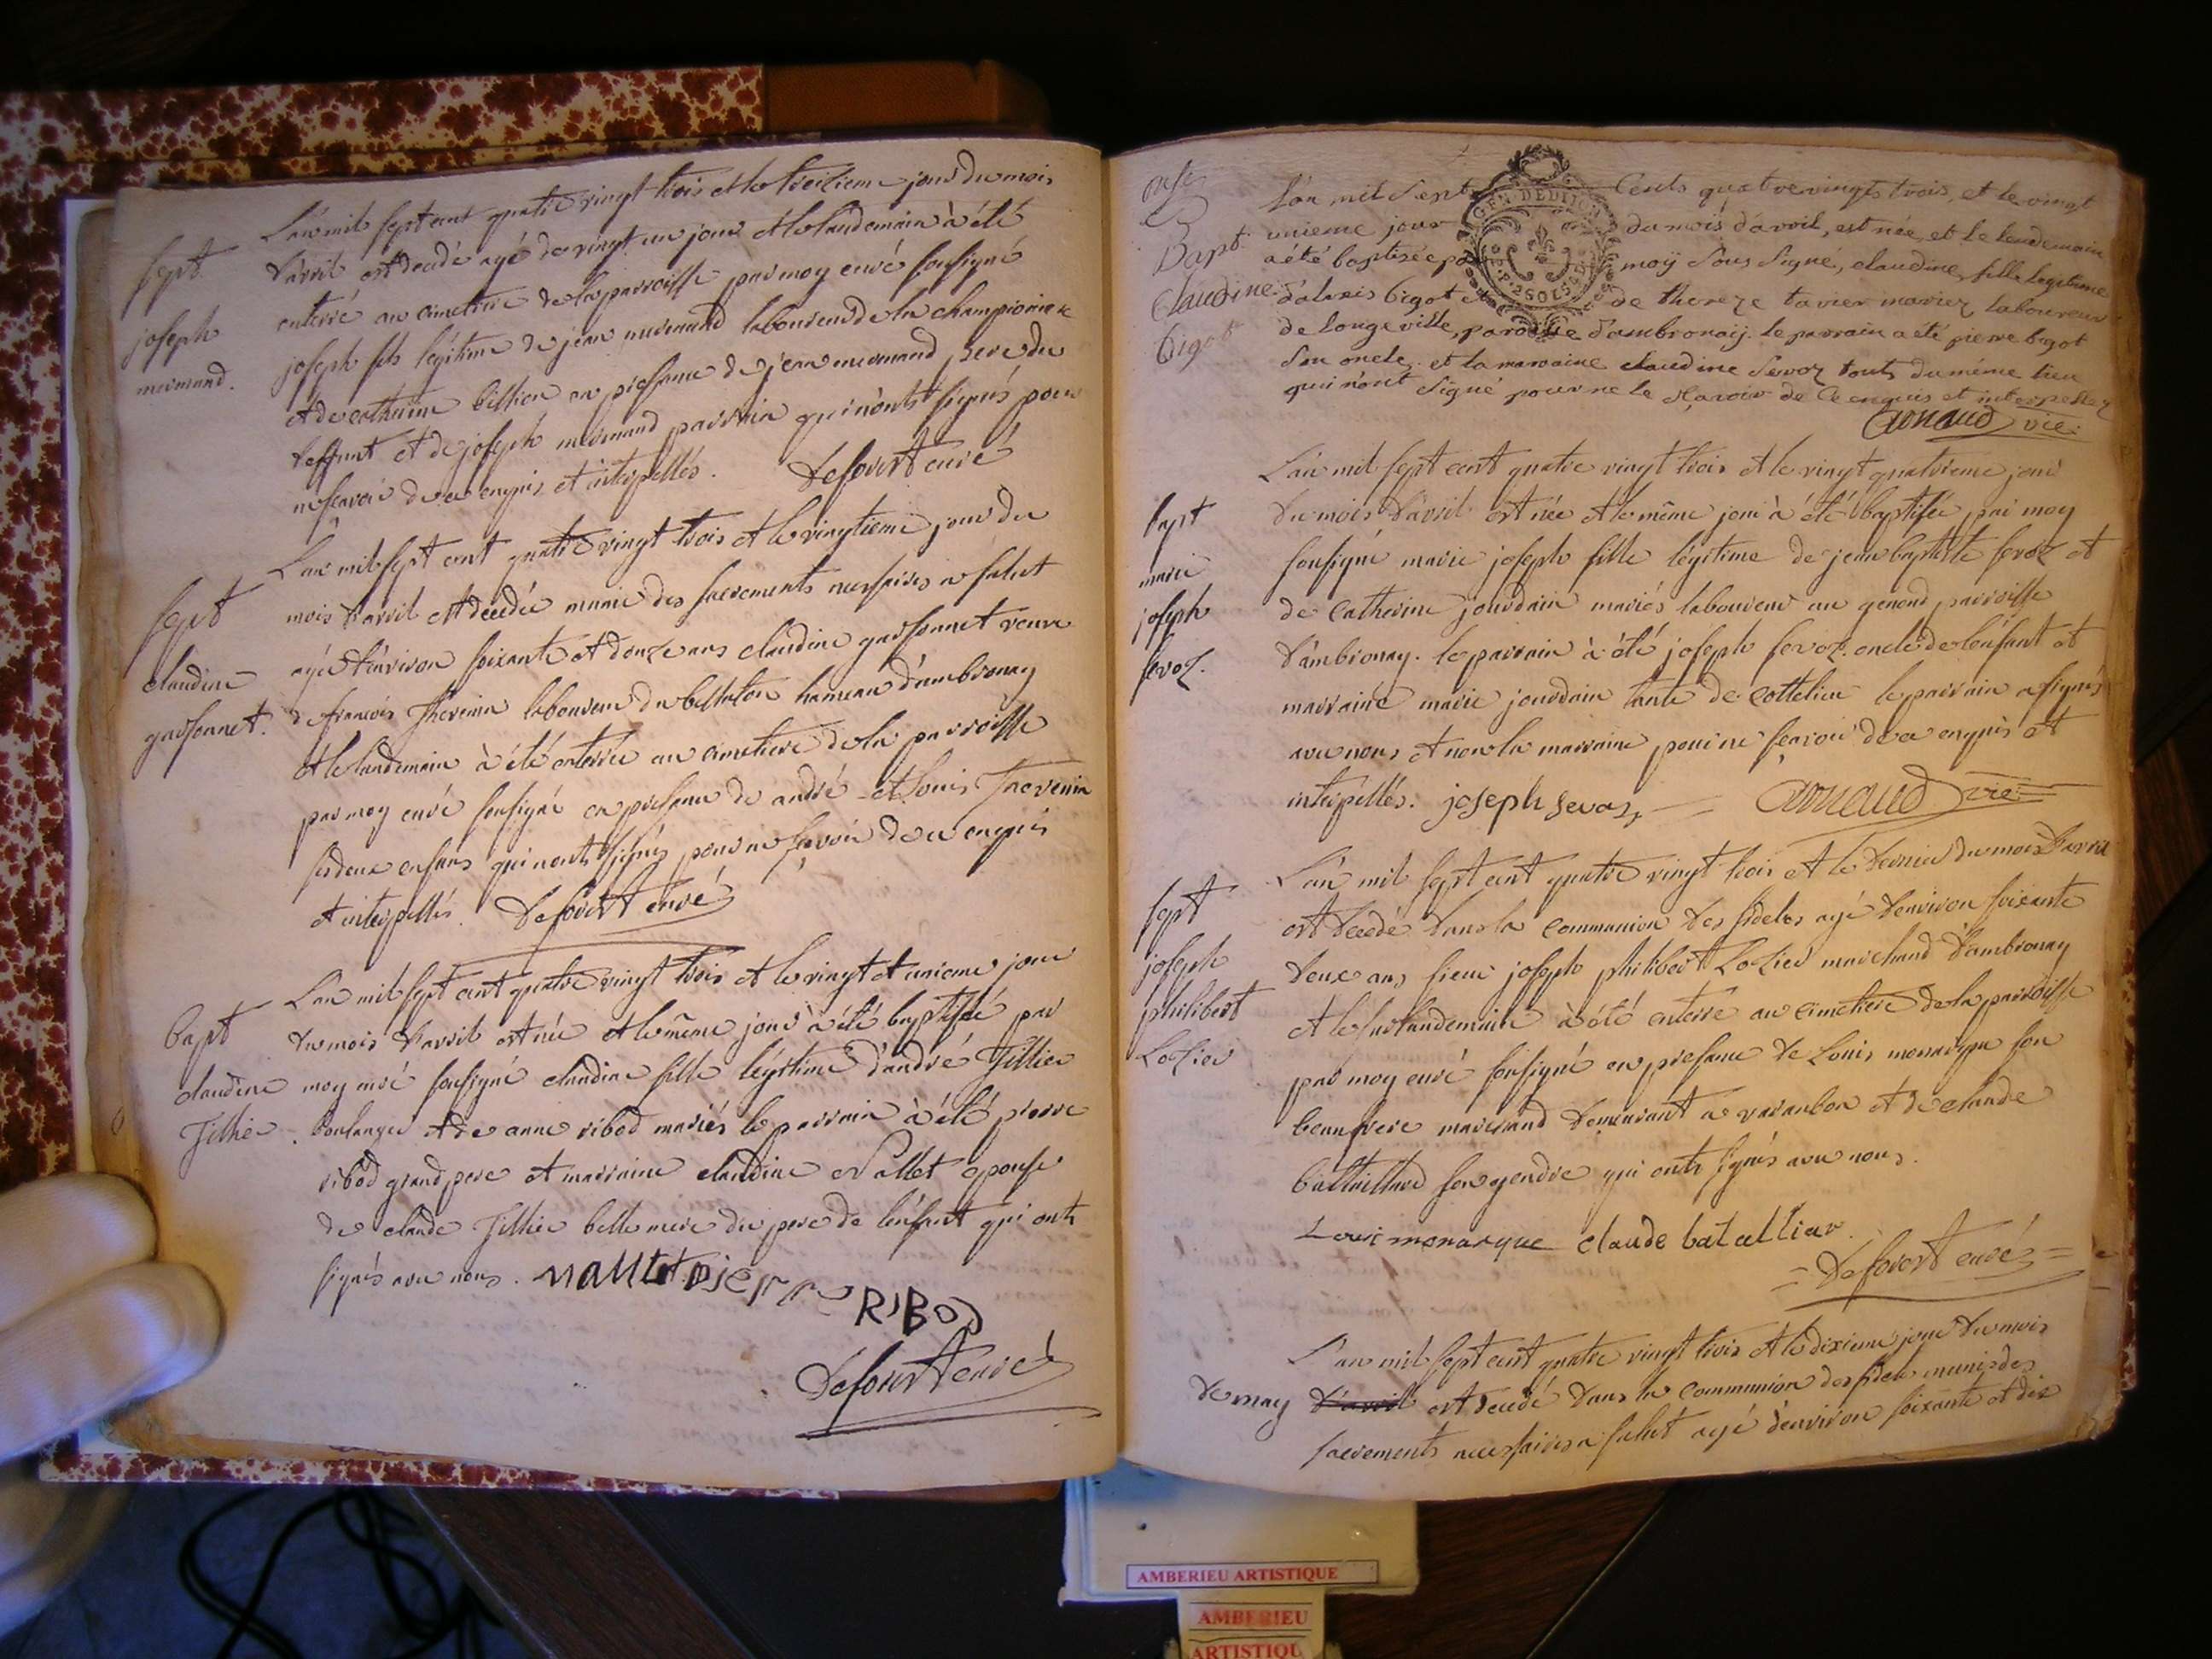 sept.
joseph
mermand.
L'an mil sept cent quatre vingt trois et le treizieme jour du mois
d'avril est decedé agé de vingt un jour et le landemain à été
enterré au cimetiere de la parroisse par moy curé soussigné
joseph fils légitime de jean mermand laboureur de la championiere
et de catherine billion en presence de jean mermand pere du
deffunt et de joseph mermand parrain qui n'onts signés pour
ne scavoir de ce enquis et interpellés. Defforest curé
sept
claudine
garsonnet.
L'an mil sept cent quatre vingt trois et le vingtieme jour du
mois d'avril est decedée munie des sacrements necessaires a salut
agée d'environ soixante et douze ans claudine garsonnet veuve
de francois Thevenin laboureur du hameau d'ambronay
et le landemain à été enterrée au cimetiere de la parroisse
par moy curé soussigné en presence de andré et louis Thevenin
ses deux enfans qui n'onts signés pour ne scavoir de ce enquis
et interpellés. Defforest curé
bapt
claudine
Tillier.
L'an mil sept cent quatre vingt trois et le vingt et unieme jour
du mois d'avril est née et le même jour à été baptisée par
moy curé soussigné claudine fille légitime d'andré Tillier
boulanger et de anne ribod mariés le parrain à été pierre
ribod grand pere et marraine claudine Nallet epouse
de claude Tillier belle mere du pere de l'enfant qui onts
signés avec nous. nallet pierre
RIBOD
Defforest curé
onze
Bapt.
Claudine
bigot
L'an mil sept Cents quatre vingts trois, et le vingt
GEN. DE DIJON
2 SOLS
unieme jour du mois d'avril, est née, et le lendemain
a été baptisée par moÿ sous signé, claudine, fille legitime
d'alexis bigot et de thereze tavier mariez laboureur
de longeville, paroisse d'ambronaÿ. le parrain a été pierre bigot
son oncle. et la marraine claudine sevoz touts du même lieu
qui n'ont signé pour ne le sçavoir de ce enquis et interpellez
Arnaud vic.
bapt
marie
joseph
sevoz.
L'an mil sept cent quatre vingt trois et le vingt quatrieme jour
du mois d'avril est née et le même jour à été baptisée par moy
soussigné marie joseph fille légitime de jean baptiste sevoz et
de catherine jourdain mariés laboureur au genoud parroisse
d'ambronay. le parrain à été joseph sevoz oncle de l'enfant et
marraine marie jourdain tante de cottelieu le parrain a signés
avec nous et non la marraine pour ne scavoir de ce enquis et
interpellés. joseph sevoz Arnaud vic.
sept
joseph
philibert
Lozier
L'an mil sept cent quatre vingt trois et le dernier du mois d'avril
est decedé dans la communion des fideles agé d'environ soixante
deux ans sieur joseph philibert Lozier marchand d'ambronay
et le surlandemain à été enterré au cimetiere de la parroisse
par moy curé soussigné en presence de Louis monarque son
beaufrere marchand demeurant a varambon et de claude
battaillard son gendre qui onts signés avec nous.
Louis monarque claude batalliar
Defforest curé
L'an mil sept cent quatre vingt trois et le dixieme jour du mois
de may d'avril est decedé dans la communion des fideles munis des
sacrements necessaires a salut agé d'environ soixante et dix
AMBERIEU ARTISTIQUE
AMBERIEU
ARTISTIQU